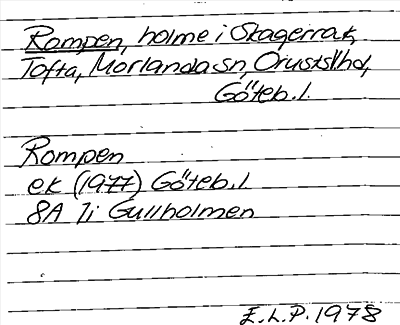 Rompen, holme i Skagerrak,
Tofta, Morlanda sn, Orusts lhd,
Göteb. l.
Rompen
ek (1977) Göteb. l.
8A 7i Gullholmen
E.L.P. 1978